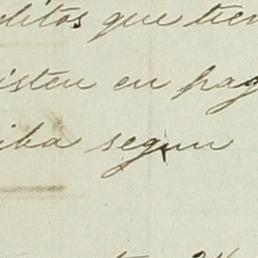 ditos que tien
isten en pag
iba segun